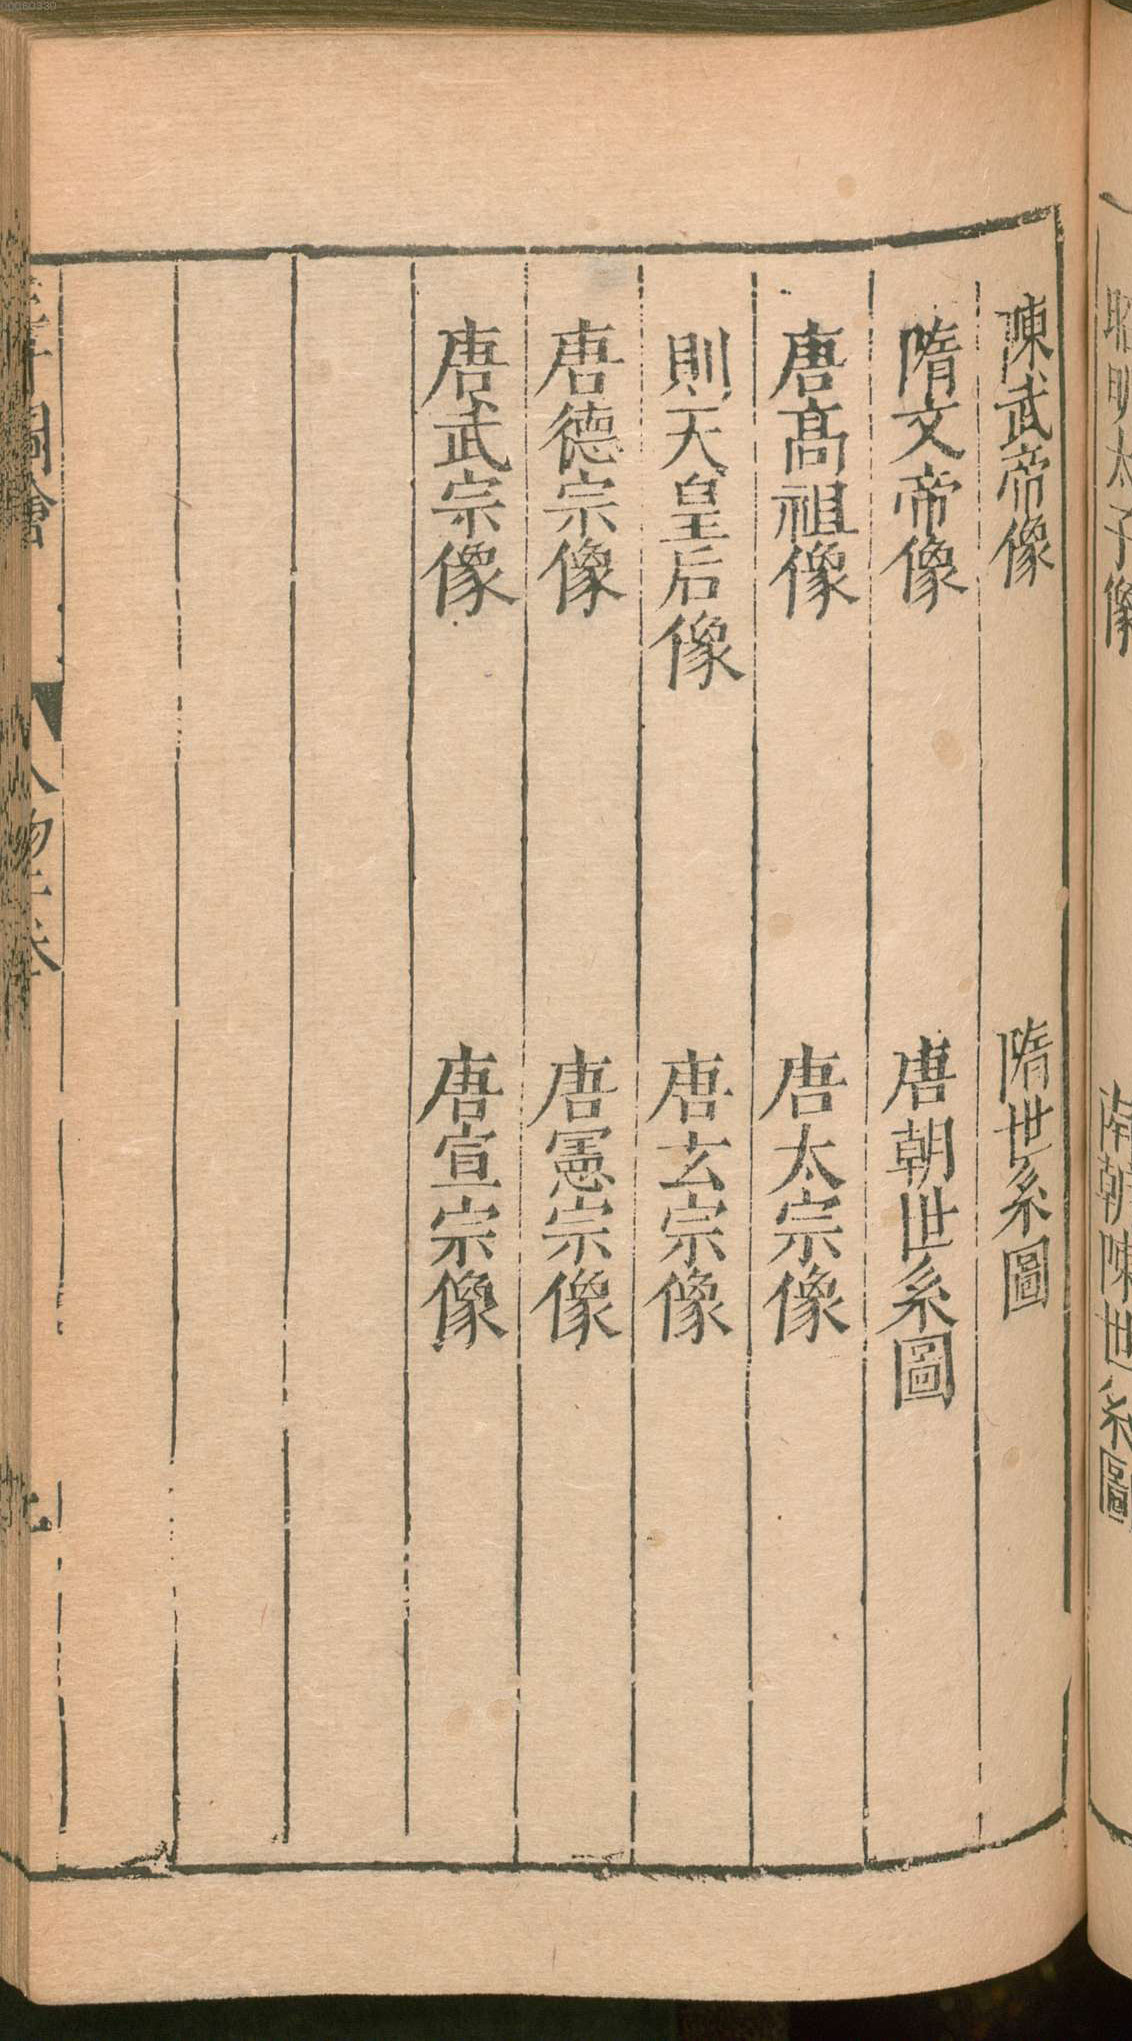 00080330
昭明太子像
南朝陳世系圖
陳武帝像
隋世系圖
隋文帝像
唐朝世系圖
唐髙祖像
唐太宗像
則天皇后像
唐玄宗像
唐德宗像
唐憲宗像
唐武宗像
唐宣宗像
圖繪
人物